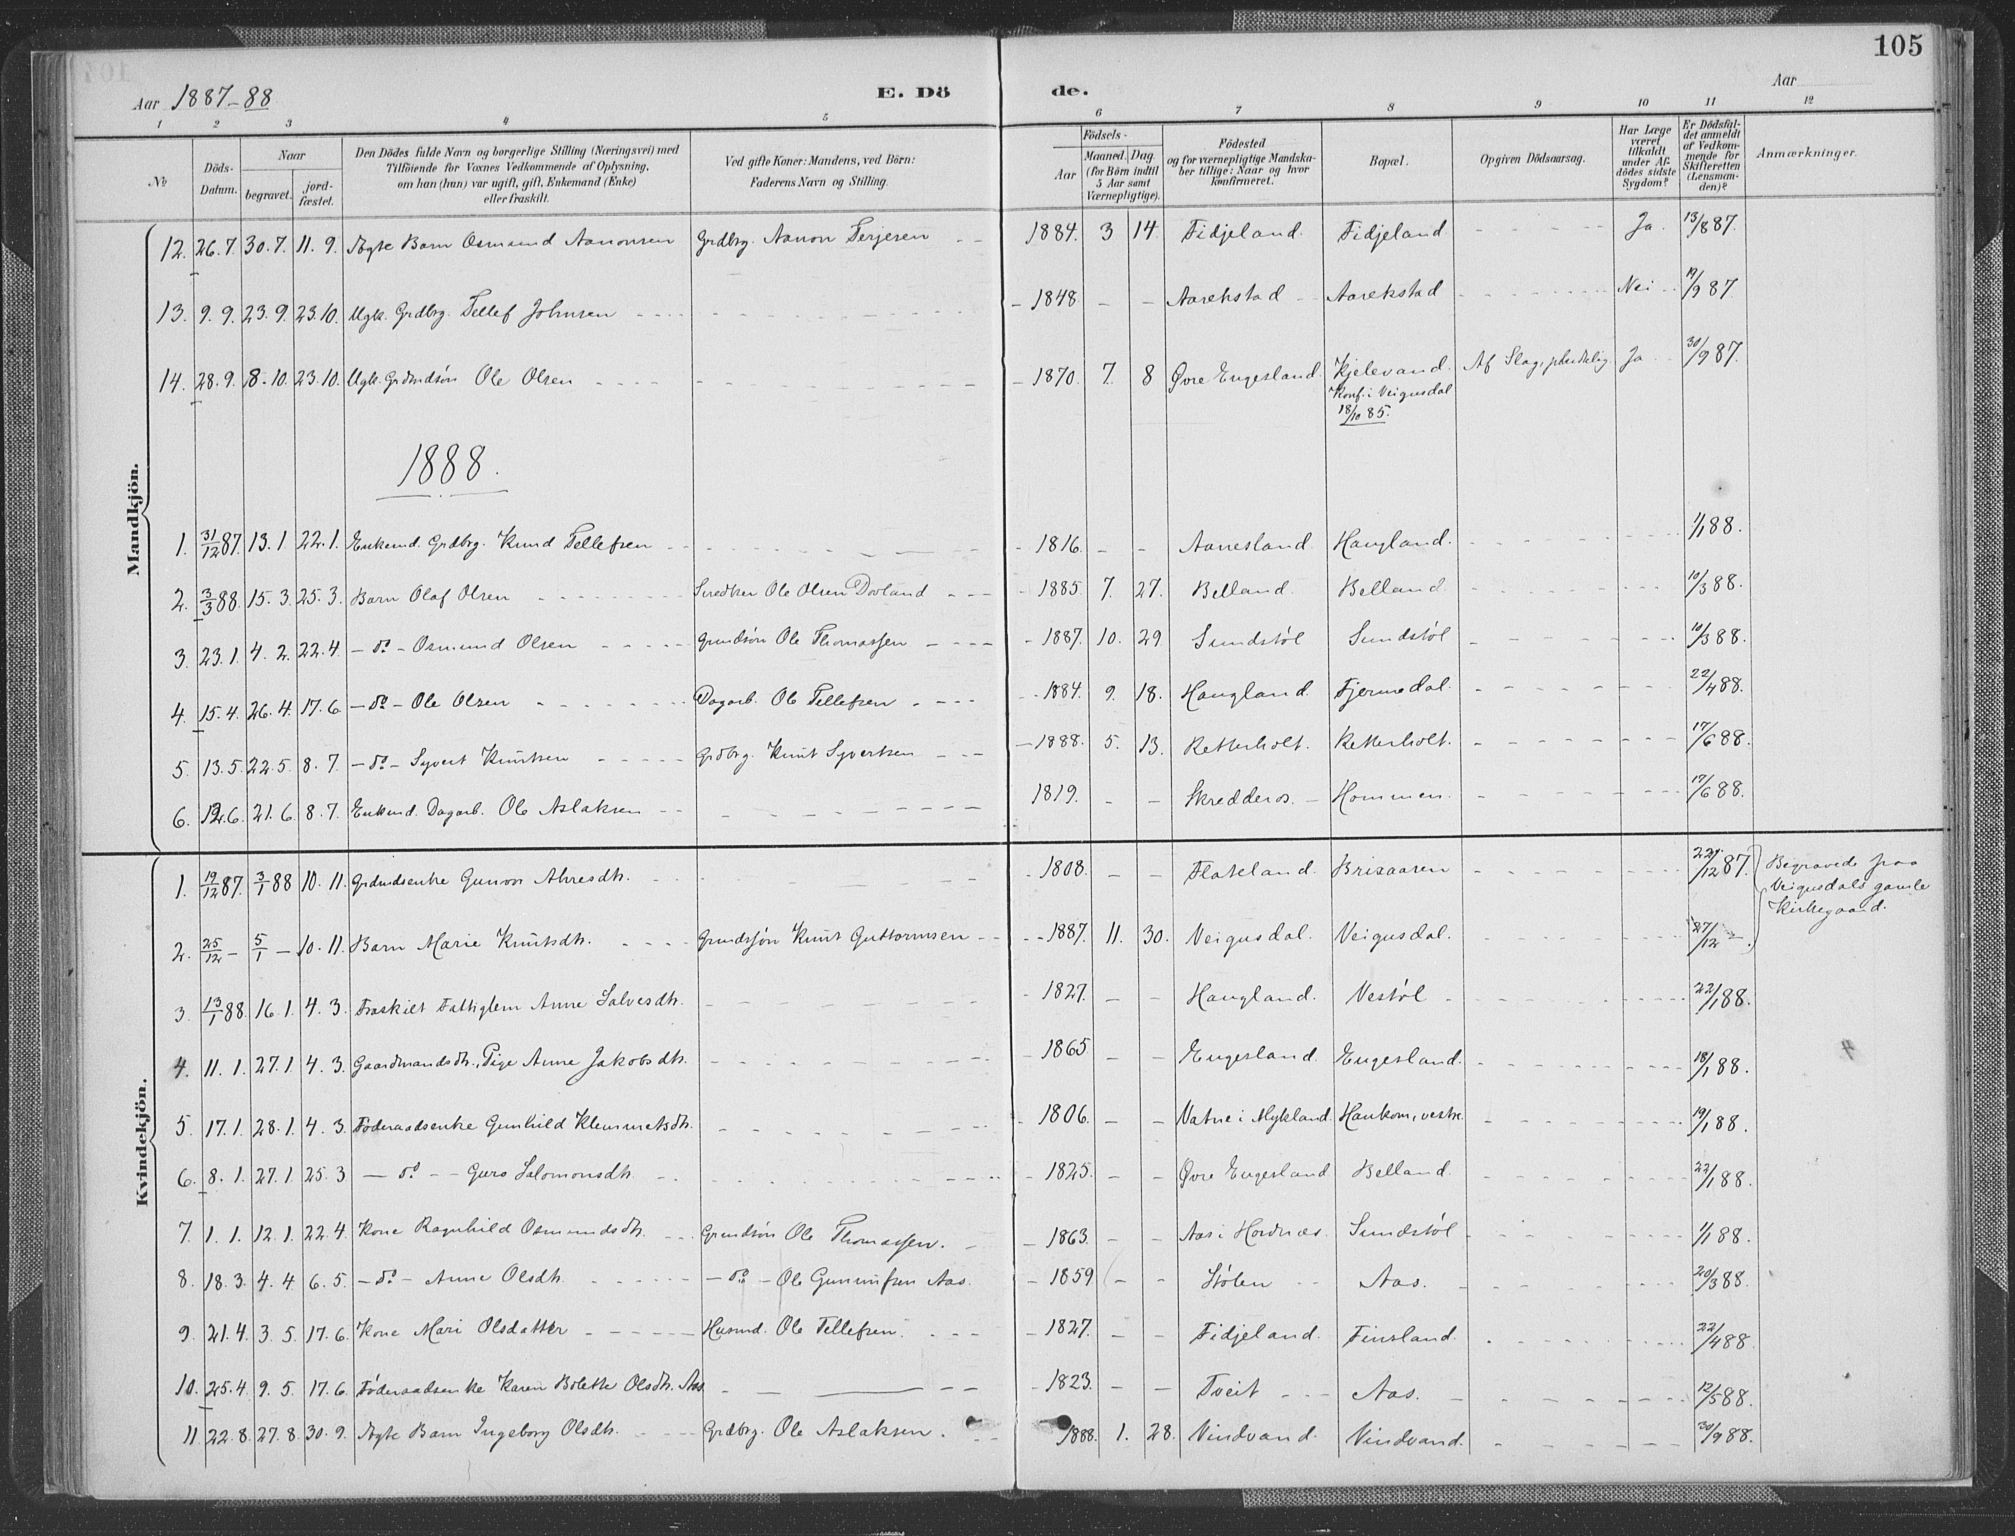 105
Aar 1887-88
E. Dö
de.
Aar
1 2 3 4 5 6 7 8 9 10 11 12
№
Döds-Datum.
Naar
begravet.
jord-fæstet.
Den Dödes fulde Navn og borgerlige Stilling (Næringsvei) med
Tilföiende for Voxnes Vedkommende af Oplysning,
om han (hun) var ugift, gift, Enkemand (Enke)
eller fraskilt.
Ved gifte Koner: Mandens, ved Börn:
Faderens Navn og Stilling.
Födsels-
Aar
Maaned. Dag
(for Börn indtil
5 Aar samt
Værnepligtige).
Födested
og for værnepligtige Mandska-
ber tillige: Naar og hvor
konfirmeret.
Bopæl.
Opgiven Dödsaarsag.
Har Læge
været
tilkaldt
under Af-
dödes sidste
Sygdom?
Er Dödsfal-
det anmeldt
af Vedkom-
mende for
Skifteretten
(Lensman-
den)?
Anmærkninger.
Mandkjön.
12. 26.7. 30.7. 11.9. Ægte Barn Osmund Aanonsen Grdbrg. Aanon Terjesen 1884. 3 14. Fidjeland. Fidjeland Ja. 13/8 87.
13. 9.9. 23.9. 23.10. Ugk. Grdbrg. Tellef Johnsen 1848 Aarekstad Aarekstad Nei 19/9 87.
14. 28.9. 8.10. 23.10. Ugk. Grdmdsön Ole Olsen 1870. 7. 8 Øvre Engesland. Kjelevand. Af Slag, pludselig Ja 30/9 87.
Konf. i Veigusdal
18/10 85.
1888.
1. 31/12 87. 13.1 22.1. Enkemd. Grdbrg. Knud Tellefsen 1816. Aanesland Haugland. 1/1 88.
2. 3/3 88. 15.3. 25.3. Barn Olaf Olsen Snedker Ole Olsen Dovland 1885. 7. 27. Belland. Belland. 10/3 88.
3. 23.1. 4.2. 22.4. - do - Osmund Olsen Grundsön Ole Thomassen 1887. 10. 29 Sundstöl Sundstöl 10/3 88.
4. 15.4. 26.4. 17.6. - do - Ole Olsen Dagarb. Ole Tellefsen 1884. 9. 18. Haugland. Fjermedal. 22/4 88.
5. 13.5. 22.5. 8.7. - do - Syvert Knutsen Grdbrg. Knut Syvertsen 1888. 5. 13. Retterholt. Retterholt. 17/6 88.
6. 12.6. 21.6. 8.7. Enkemd. Dagarb. Ole Aslaksen 1819. Skredderos. Hommen. 17/6 88.
Kvindekjön.
1. 19/12 87. 3/1 88 10.11. Grdmdsenke Gunvor Ahresdtr. 1808. Flateland. Brisaasen 22/12 87. Begravede paa
Veigusdals gamle
Kirkegaard.
2. 25/12 - 5/1 - 10.11. Barn Marie Knutsdtr. Grundsjön Knut Guttormsen 1887. 11. 30. Veigusdal. Veigusdal. 27/12 -
3. 13/1 88. 16.1. 4.3. Fraskilt Fattiglem Anne Salvesdtr. 1827. Haugland. Vestöl 22/1 88.
4. 11.1. 27.1. 4.3. Gaardmandsdtr. Pige Anne Jakobsdtr. 1865 Engesland. Engesland. 18/1 88.
5. 17.1. 28.1. 4.3. Föderaadsenke Gunhild Klemmetsdtr. 1806. Vatne i Mykland Haukom, vestre 19/1 88.
6. 8.1. 27.1. 25.3 - do - Guro Salomonsdtr. 1825. Øvre Engesland Belland. 22/1 88.
7. 1.1. 12.1. 22.4. Kone Ragnhild Osmundsdtr. Grundsön Ole Thomassen. 1863. Aas i Hordnes. Sundstöl 1/1 88.
8. 18.3. 4.4 6.5. - do - Anne Olsdtr. - do - Ole Gunnufsen Aas. 1859 Stölen Aas. 20/3 88.
9. 21.4. 3.5. 17.6. Kone Mari Olsdatter Husmd. Ole Tellefsen. 1827. Fidjeland. Finsland. 22/4 88.
10. 25.4. 9.5. 17.6. Föderaadsenke Karen Bolette Olsdtr. Aas 1823. Tveit Aas. 12/5 88.
11 22.8. 27.8. 30.9. Ægte Barn Ingeborg Olsdtr. Grdbrg. Ole Aslaksen. 1888. 1. 28. Vindvand. Vindvand. 30/9 88.